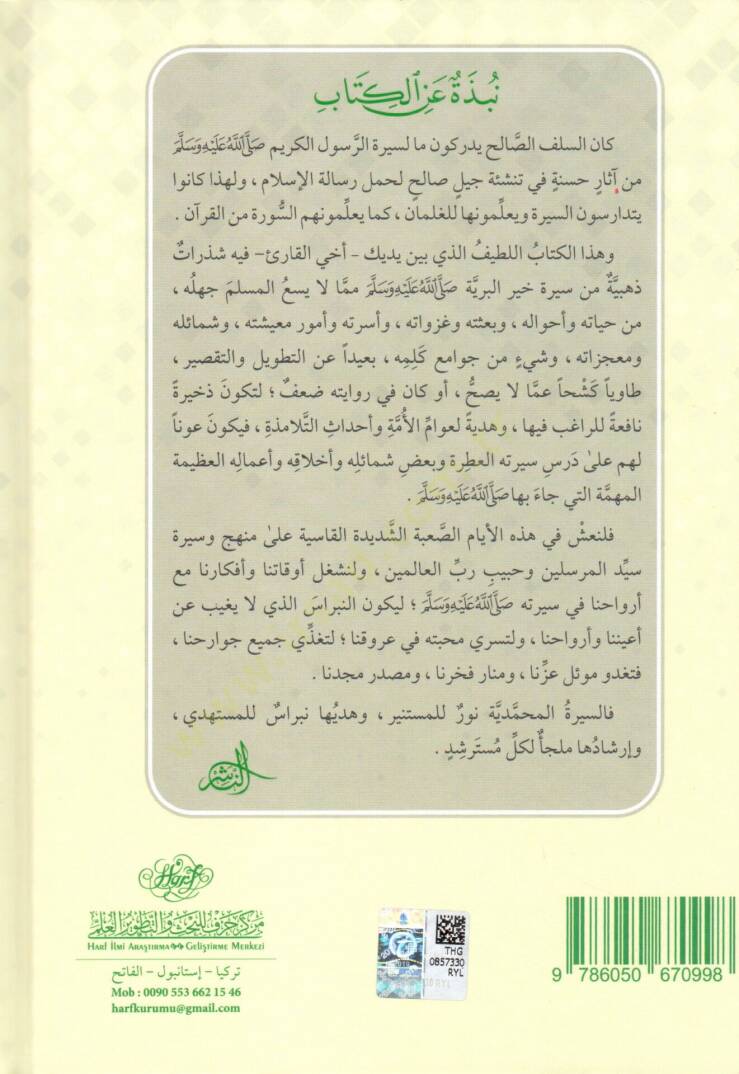 نُبْذَةٌ عَنِ ٱلْكِتَابِ
كان السلف الصَّالح يدركون ما لسيرة الرَّسول الكريم صَلَّى ٱللَّهُ عَلَيْهِ وَسَلَّمَ
من آثارٍ حسنةٍ في تنشئة جيلٍ صالحٍ لحمل رسالة الإسلام ، ولهذا كانوا
يتدارسون السيرة ويعلِّمونها للغلمان ، كما يعلِّمونهم السُّورة من القرآن .
وهذا الكتابُ اللطيفُ الذي بين يديك - أخي القارئ- فيه شذراتٌ
ذهبيَّةٌ من سيرة خير البريَّة صَلَّى ٱللَّهُ عَلَيْهِ وَسَلَّمَ ممَّا لا يسعُ المسلمَ جهلُه ،
من حياته وأحواله ، وبعثته وغزواته ، وأسرته وأمور معيشته ، وشمائله
ومعجزاته ، وشيءٍ من جوامع كَلِمِه ، بعيداً عن التطويل والتقصير ،
طاوياً كَشْحاً عمَّا لا يصحُّ ، أو كان في روايته ضعفٌ ؛ لتكونَ ذخيرةً
نافعةً للراغب فيها ، وهديةً لعوامِّ الأُمَّةِ وأحداثِ التَّلامذةِ ، فيكونَ عوناً
لهم علىٰ دَرسِ سيرته العطِرة وبعضِ شمائلِه وأخلاقِه وأعمالِه العظيمة
المهمَّة التي جاءَ بها صَلَّى ٱللَّهُ عَلَيْهِ وَسَلَّمَ .
فلنعشْ في هذه الأيام الصَّعبة الشَّديدة القاسية علىٰ منهج وسيرة
سيِّد المرسلين وحبيبِ ربِّ العالمين ، ولنشغل أوقاتنا وأفكارنا مع
أرواحنا في سيرته صَلَّى ٱللَّهُ عَلَيْهِ وَسَلَّمَ ؛ ليكون النبراسَ الذي لا يغيب عن
أعيننا وأرواحنا ، ولتسري محبته في عروقنا ؛ لتغذِّي جميع جوارحنا ،
فتغدو موئل عزِّنا ، ومنار فخرنا ، ومصدر مجدنا .
فالسيرةُ المحمَّديَّة نورٌ للمستنير ، وهديُها نبراسٌ للمستهدي ،
وإرشادُها ملجأٌ لكلِّ مُسترشِدٍ .
الناشر
Harf
مركز حرف للبحث والتطوير العلمي
Harf İlmi Araştırma ve Geliştirme Merkezi
تركيا - إستانبول - الفاتح
Mob : 0090 553 662 15 46
harfkurumu@gmail.com
THG
0857330
RYL
9 786050 670998